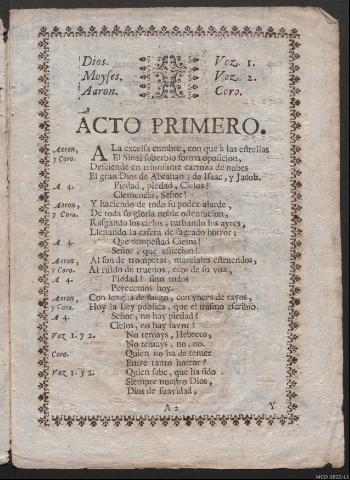 Dios. Voz. 1.
Moyses. Voz. 2.
Aaron. Coro.
ACTO PRIMERO.
Aaron, A La excelsa cumbre, con que à las estrellas
y Coro. El Sinai soberbio forma oposicion,
Desciende en triunfante carroza de nubes
El gran Dios de Abrahan, de Isaac, y Jacob.
A 4. Piedad, piedad, Cielos!
Clemencia, Señor!
Aaron, Y haciendo de todo su poder alarde,
y Coro. De toda su gloria noble ostentacion,
Rasgando los cielos, turbando los ayres,
Llenando la esfera de sagrado horror;
A 4. Que tempestad Cielos!
Señor, que afliccion!
Aaron, Al son de trompetas, marciales estruendos,
y Coro. Al ruído de truenos, ecos de su voz,
A 4. Piedad! sino todos
Perecemos hoy.
Aaron, Con lengua de fuego, con voces de rayos,
y Coro. Hoy la Ley publica, que el mismo escribio.
A 4. Señor, no hay piedad?
Cielos, no hay favor?
Voz 1. y 2. No temays, Hebreos,
No temays, no, no.
Coro. Quien no ha de temer
Entre tanto horror?
Voz 1. y 2. Quien sabe, que ha sido
Siempre nuestro Dios,
Dios de suavidad,
A 2 Y
MCD 2022-L5